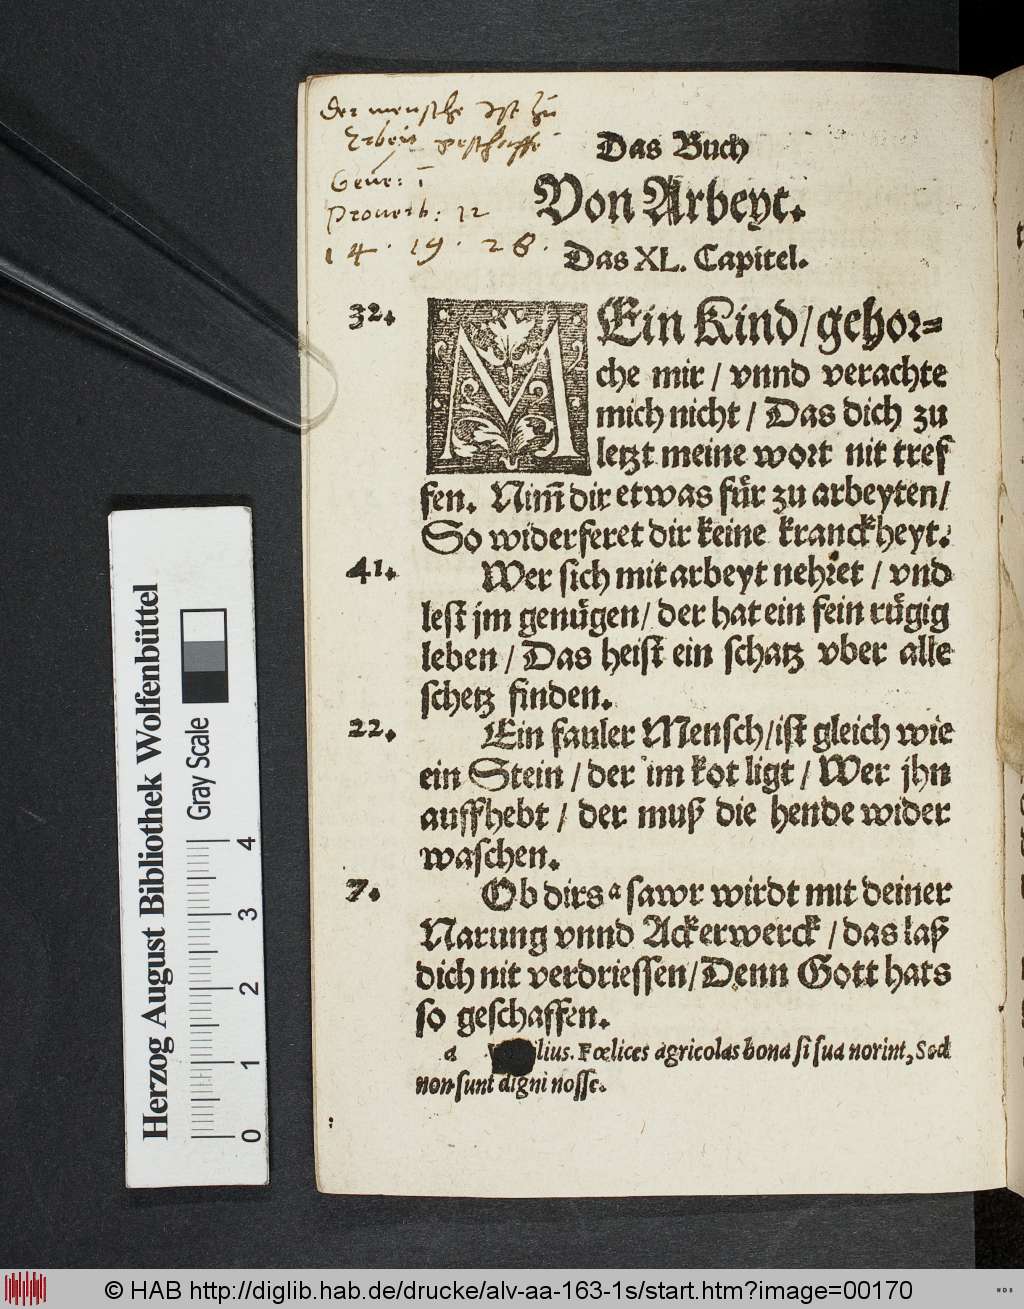 Der mensche Ist zu
Erbeit geschaffe
Gene: 1
Proverb: 12
14 . 19 . 28 .
Das Buch
Von Arbeyt.
Das XL. Capitel.
32.
MEin Kind/gehor=
che mir / vnnd verachte
mich nicht / Das dich zu
letzt meine wort nit tref
fen. Nim̃ dir etwas für zu arbeyten/
So widerferet dir keine kranckheyt.
41.
Wer sich mit arbeyt nehret / vnd
lest jm genügen/ der hat ein fein rügig
leben / Das heist ein schatz vber alle
schetz finden.
22.
Ein fauler Mensch/ist gleich wie
ein Stein / der im kot ligt / Wer jhn
auffhebt / der muß die hende wider
waschen.
7.
Ob dirs a sawr wirdt mit deiner
Narung vnnd Ackerwerck / das laß
dich nit verdriessen/Denn Gott hats
so geschaffen.
a ilius. Fœlices agricolas bona si sua norint, Sed
non sunt digni nosse.
Herzog August Bibliothek Wolfenbüttel
Gray Scale
0 1 2 3 4
© HAB http://diglib.hab.de/drucke/alv-aa-163-1s/start.htm?image=00170